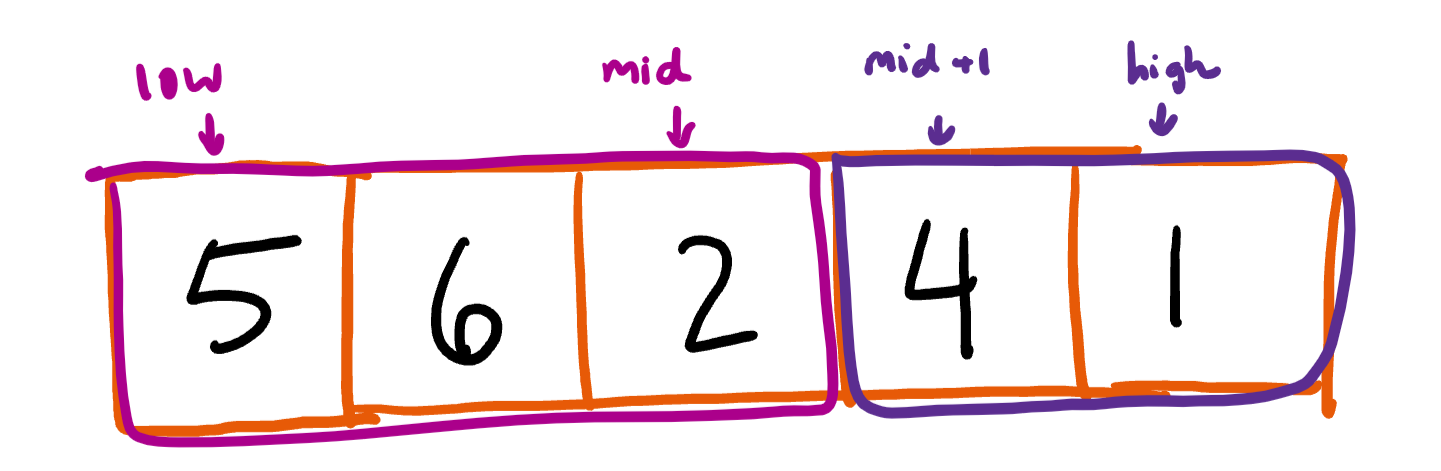 low mid mid+1 high
5 6 2 4 1